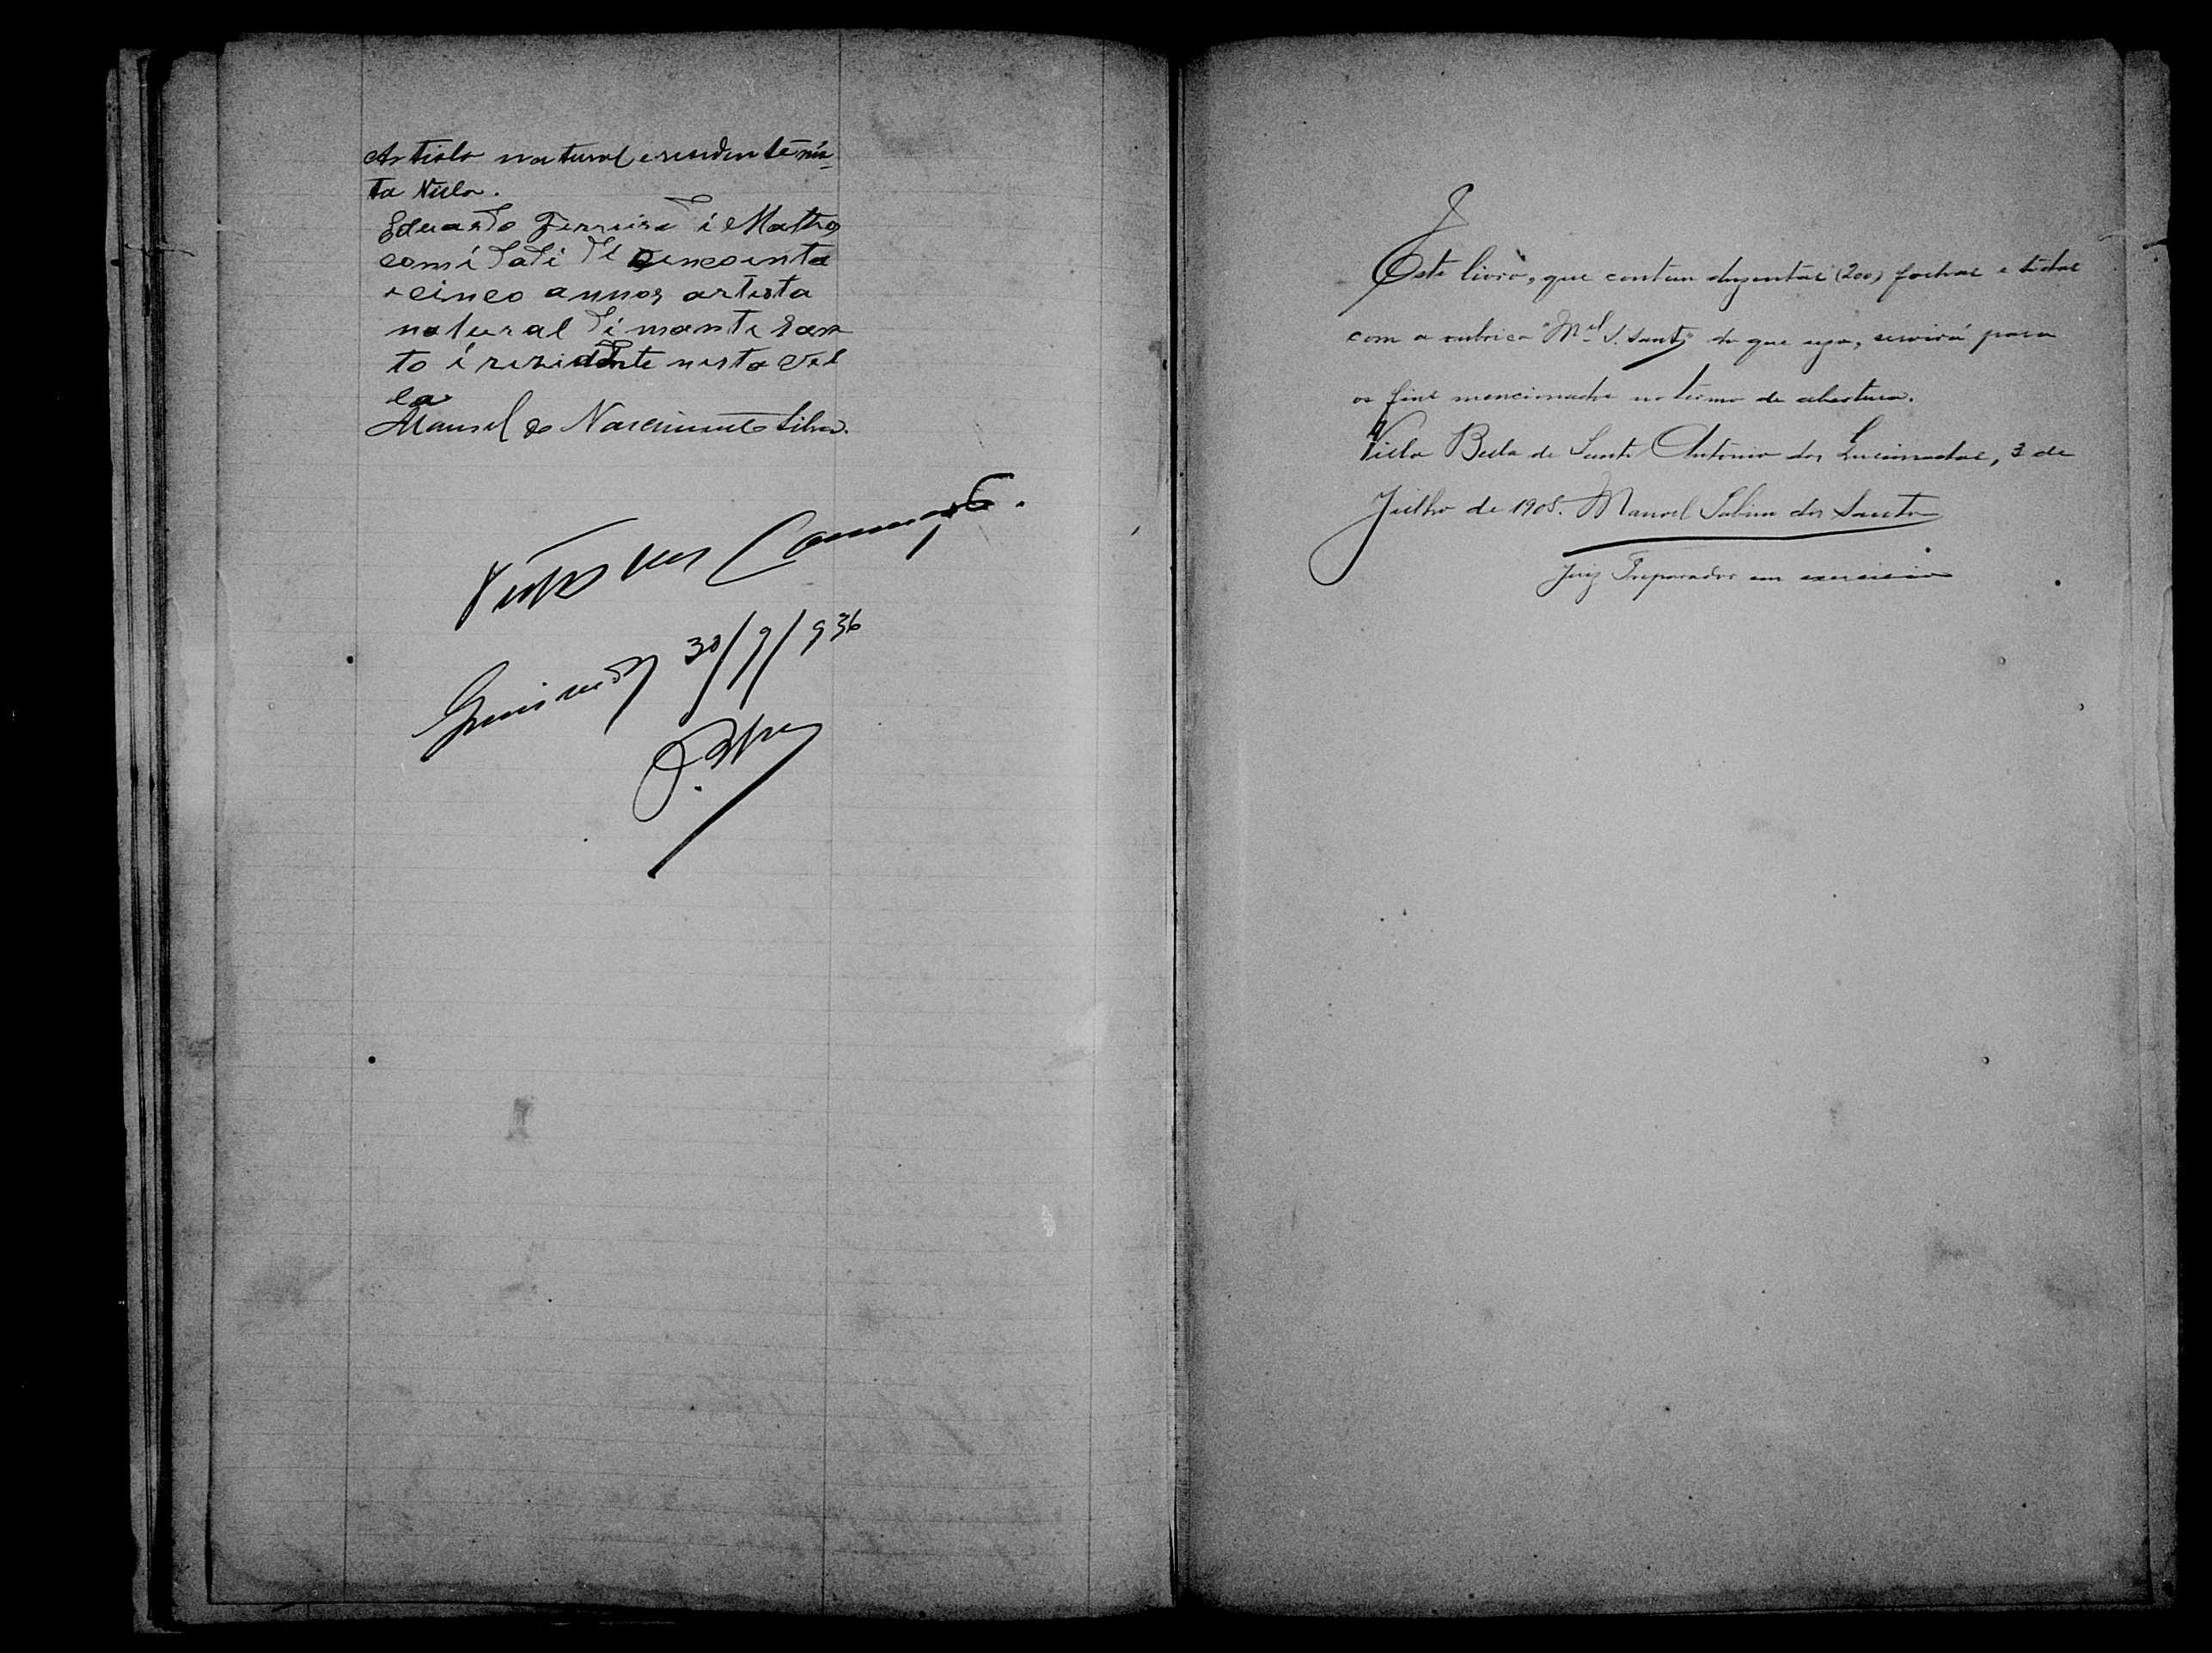 Artista natural e residente nes-
ta Villa.
Eduardo Ferreira di Mattos
com idadi di cincoenta
e cinco annos artista
natural di monti San
to i residente nesta Vil
la
Manoel do Nascimento Silva.
Visto em
30/9/936
Este livro, que contem duzentas (200) folhas e todas
com a rubrica "Mel S. Santos" de que uso, servirá para
os fins mencionados no termo de abertura.
Villa Bella de Santo Antonio das Queimadas, 3 de
Julho de 1905. Manoel Sabino dos Santos
Juiz Preparador em exercicio